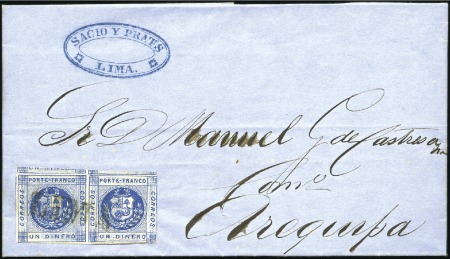 SACIO Y PRATS
LIMA.
Sr D Manuel G de Castresana
Como
Arequipa
PORTE FRANCO
CORREOS
CORREOS
UN DINERO
PORTE FRANCO
CORREOS
CORREOS
UN DINERO